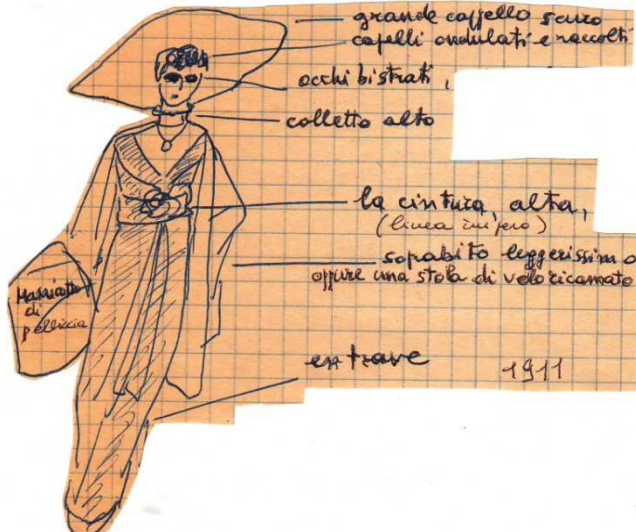 grande cappello scuro
capelli ondulati e raccolti
occhi bistrati,
colletto alto
la cintura, alta,
(linea impero)
soprabito leggerissimo
oppure una stola di velo ricamato
Manicotto
di
pelliccia
entrave
1911